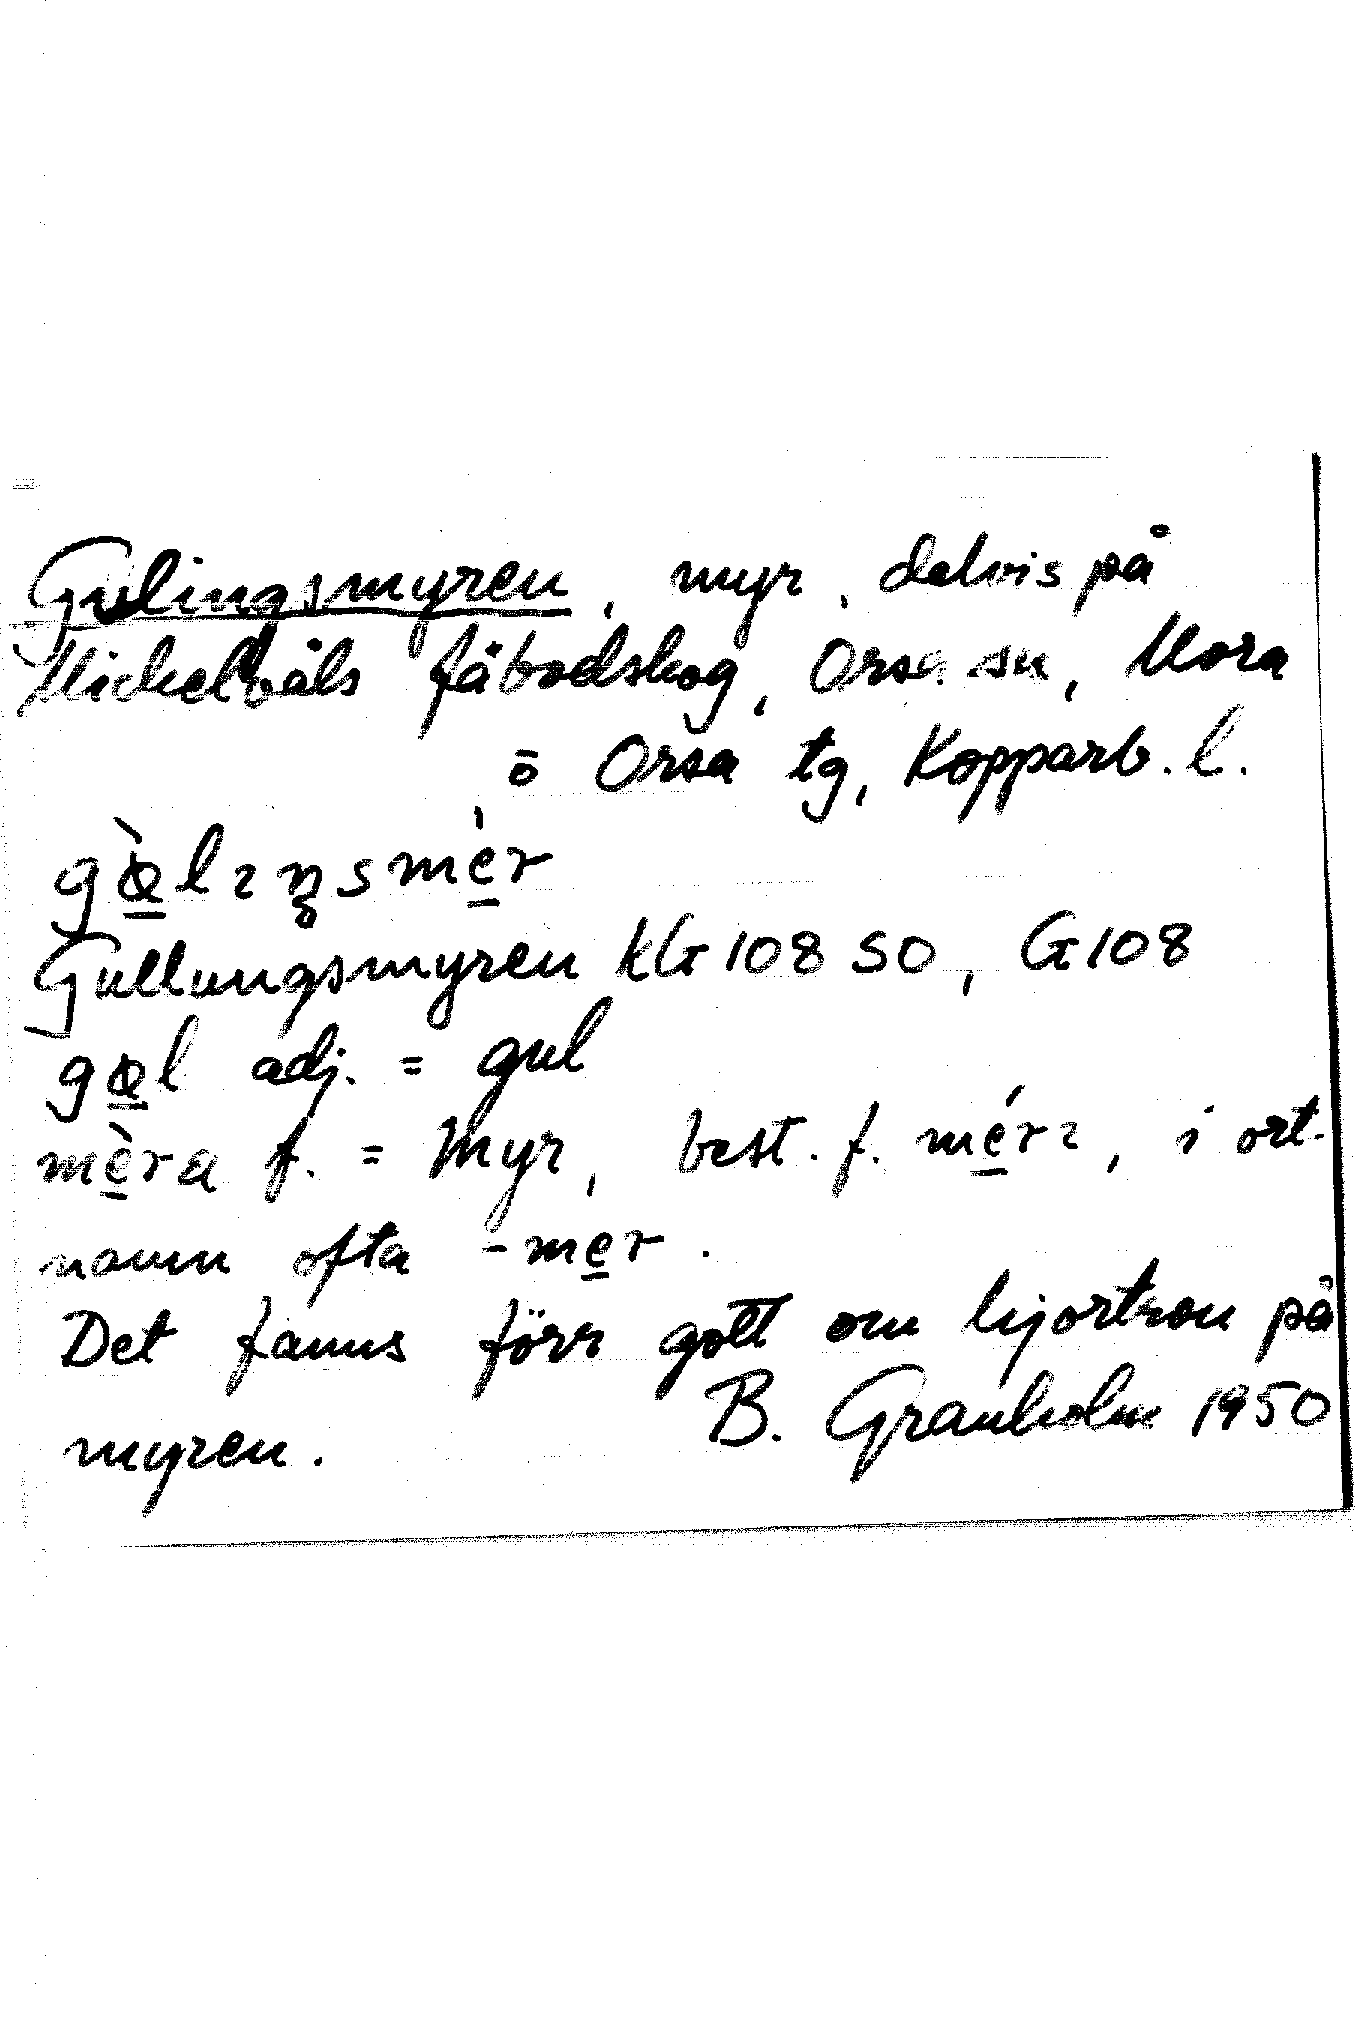 Gulingsmyren, myr, delvis på
Mickelvåls fäbodskog, Orsa sn, Mora
o Orsa tg, Kopparb. l.
gœ̱̀lıŋsmè̱r
Gullungsmyren KG 108 SO, G 108
gœ̱l adj. = gul
mè̱ra f. = Myr, best. f. mé̱rı, i ort-
namn ofta -me̱r.
Det fanns förr gott om hjortron på
myren. B. Granholm 1950